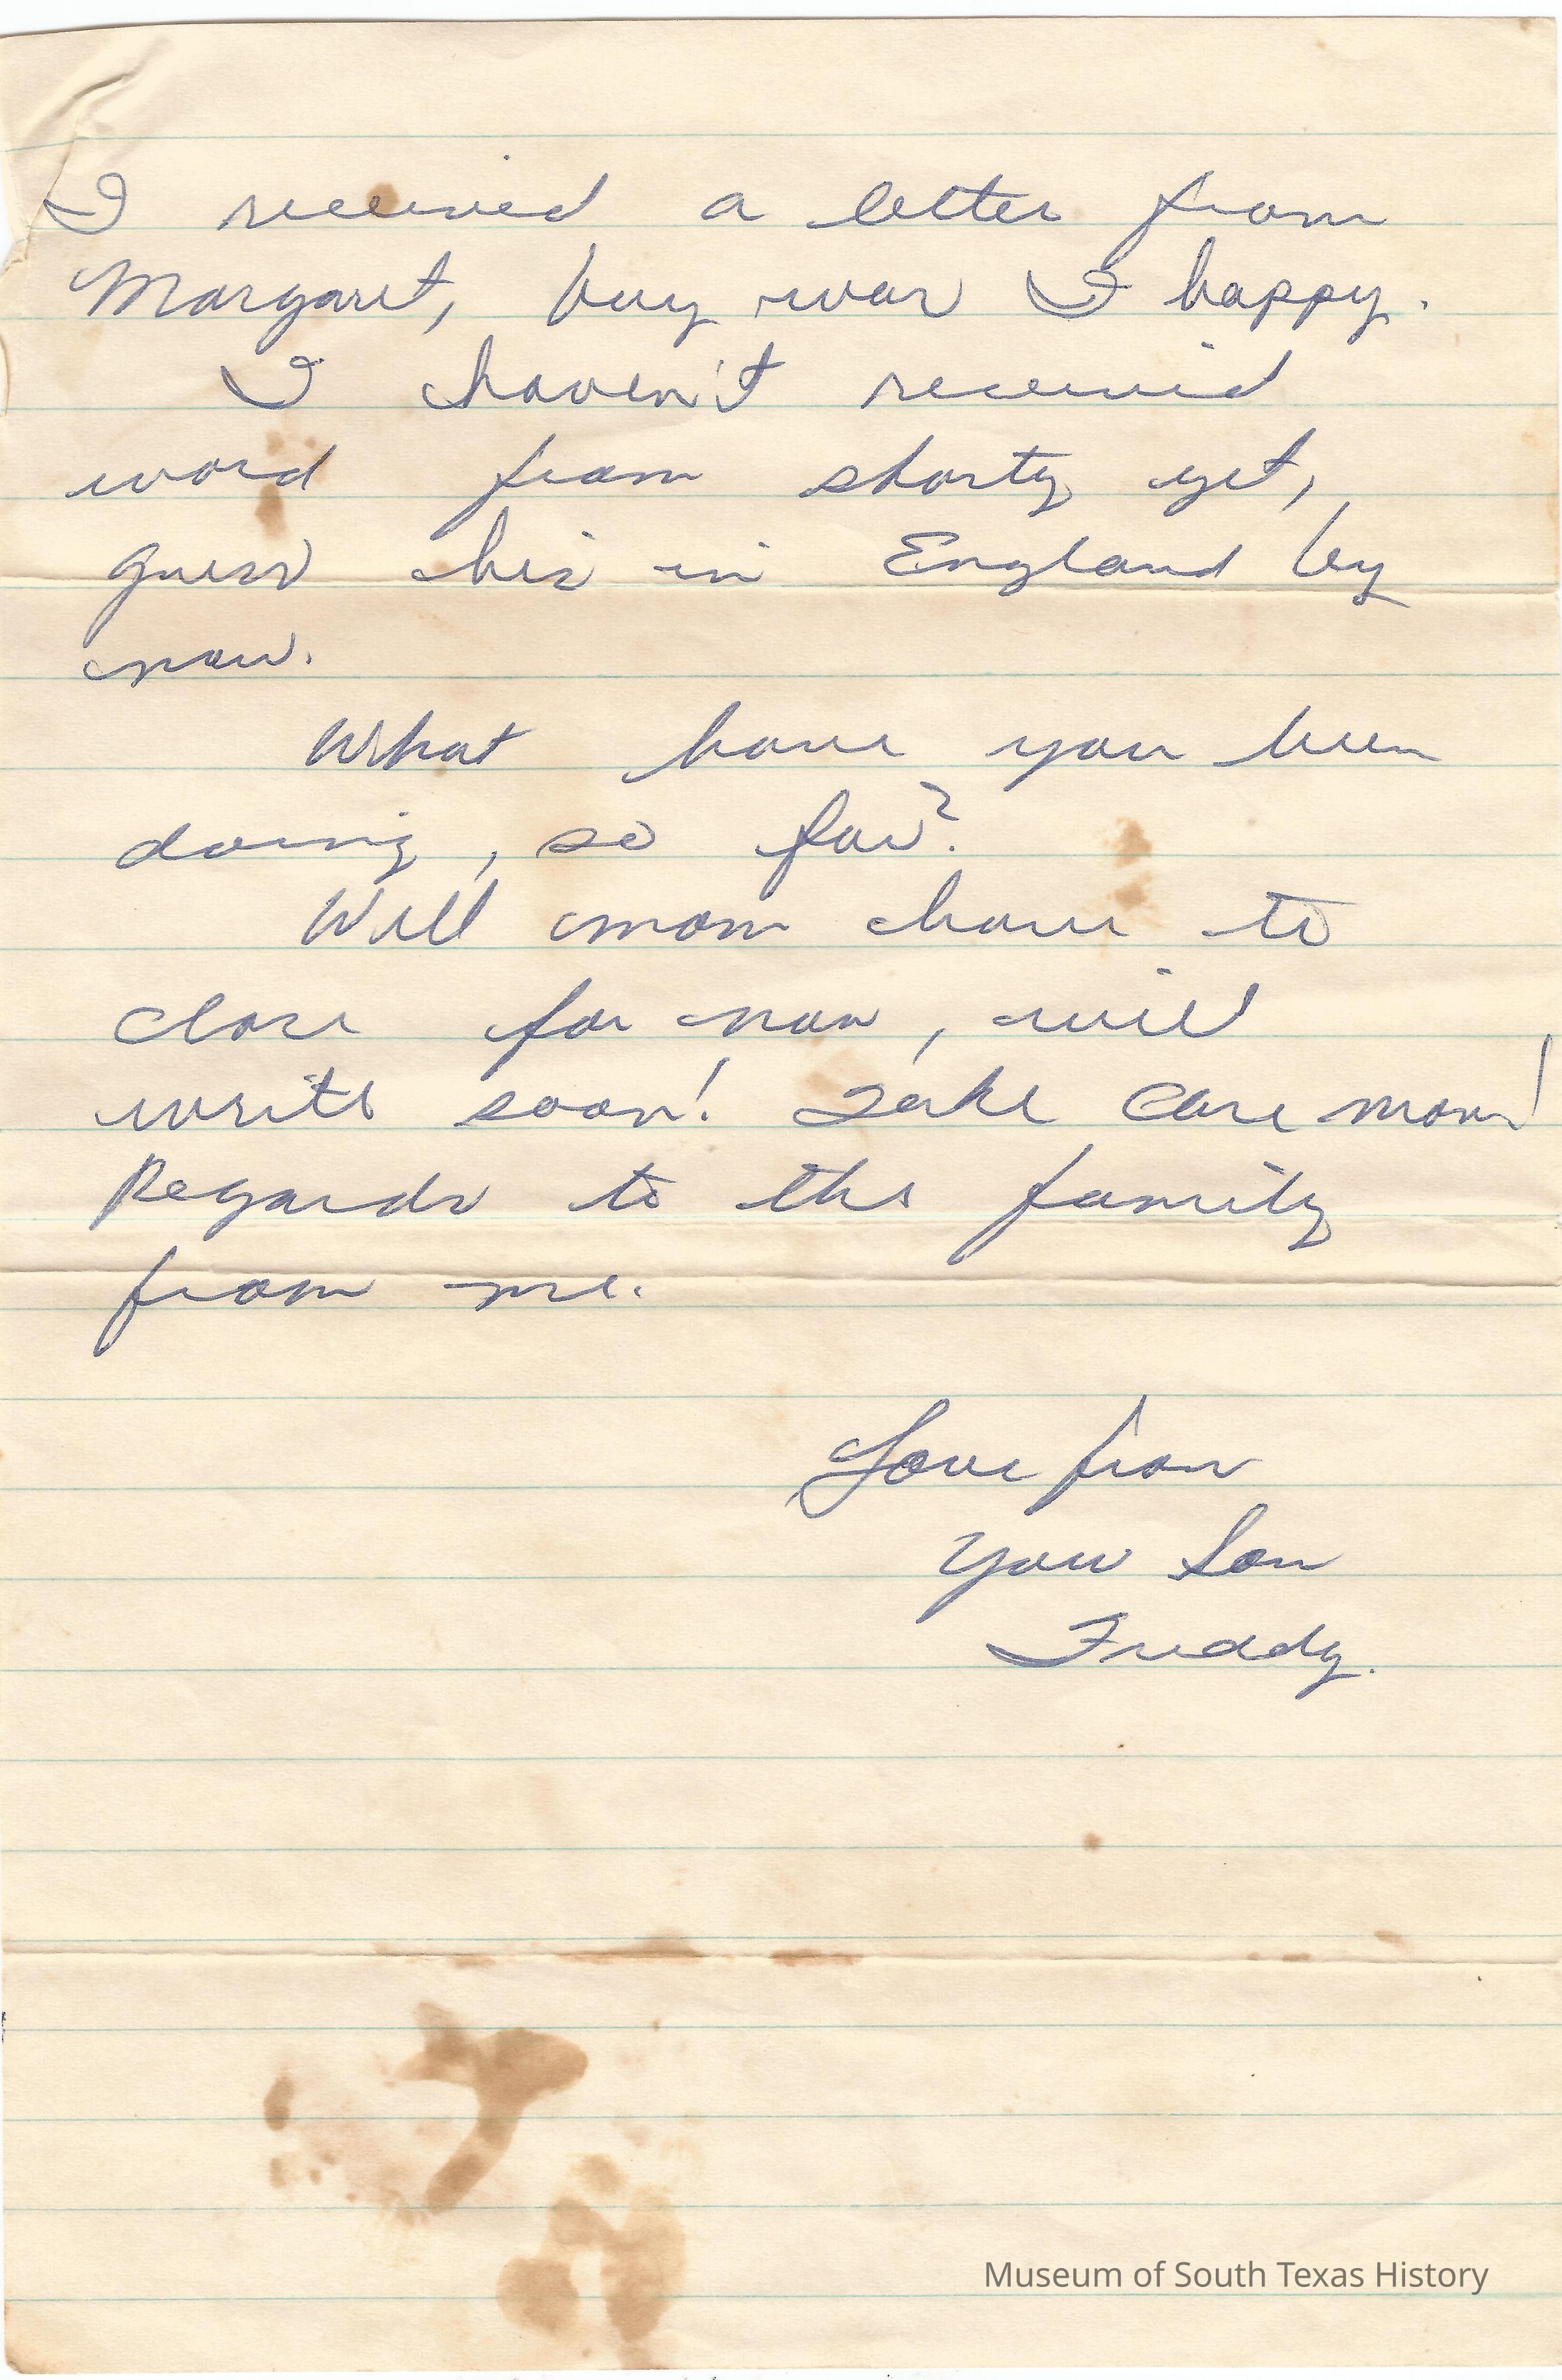 I received a letter from
Margaret, boy was I happy.
I haven't received
word from shorty yet,
guess his in England by
now.
What have you been
doing, so far?
Well mom have to
close for now, will
write soon! Take care mom!
Regards to the family
from me.
Love from
Your Son
Freddy.
Museum of South Texas History